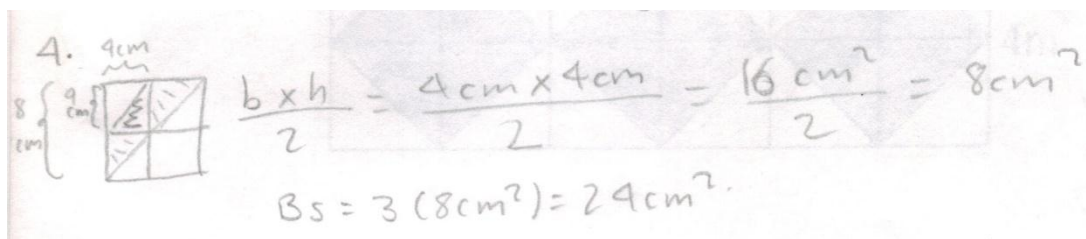 4. 4cm
8 cm { 4 cm { b x h / 2 = 4 cm x 4 cm / 2 = 16 cm² / 2 = 8cm²
Bs = 3 (8cm²) = 24cm².